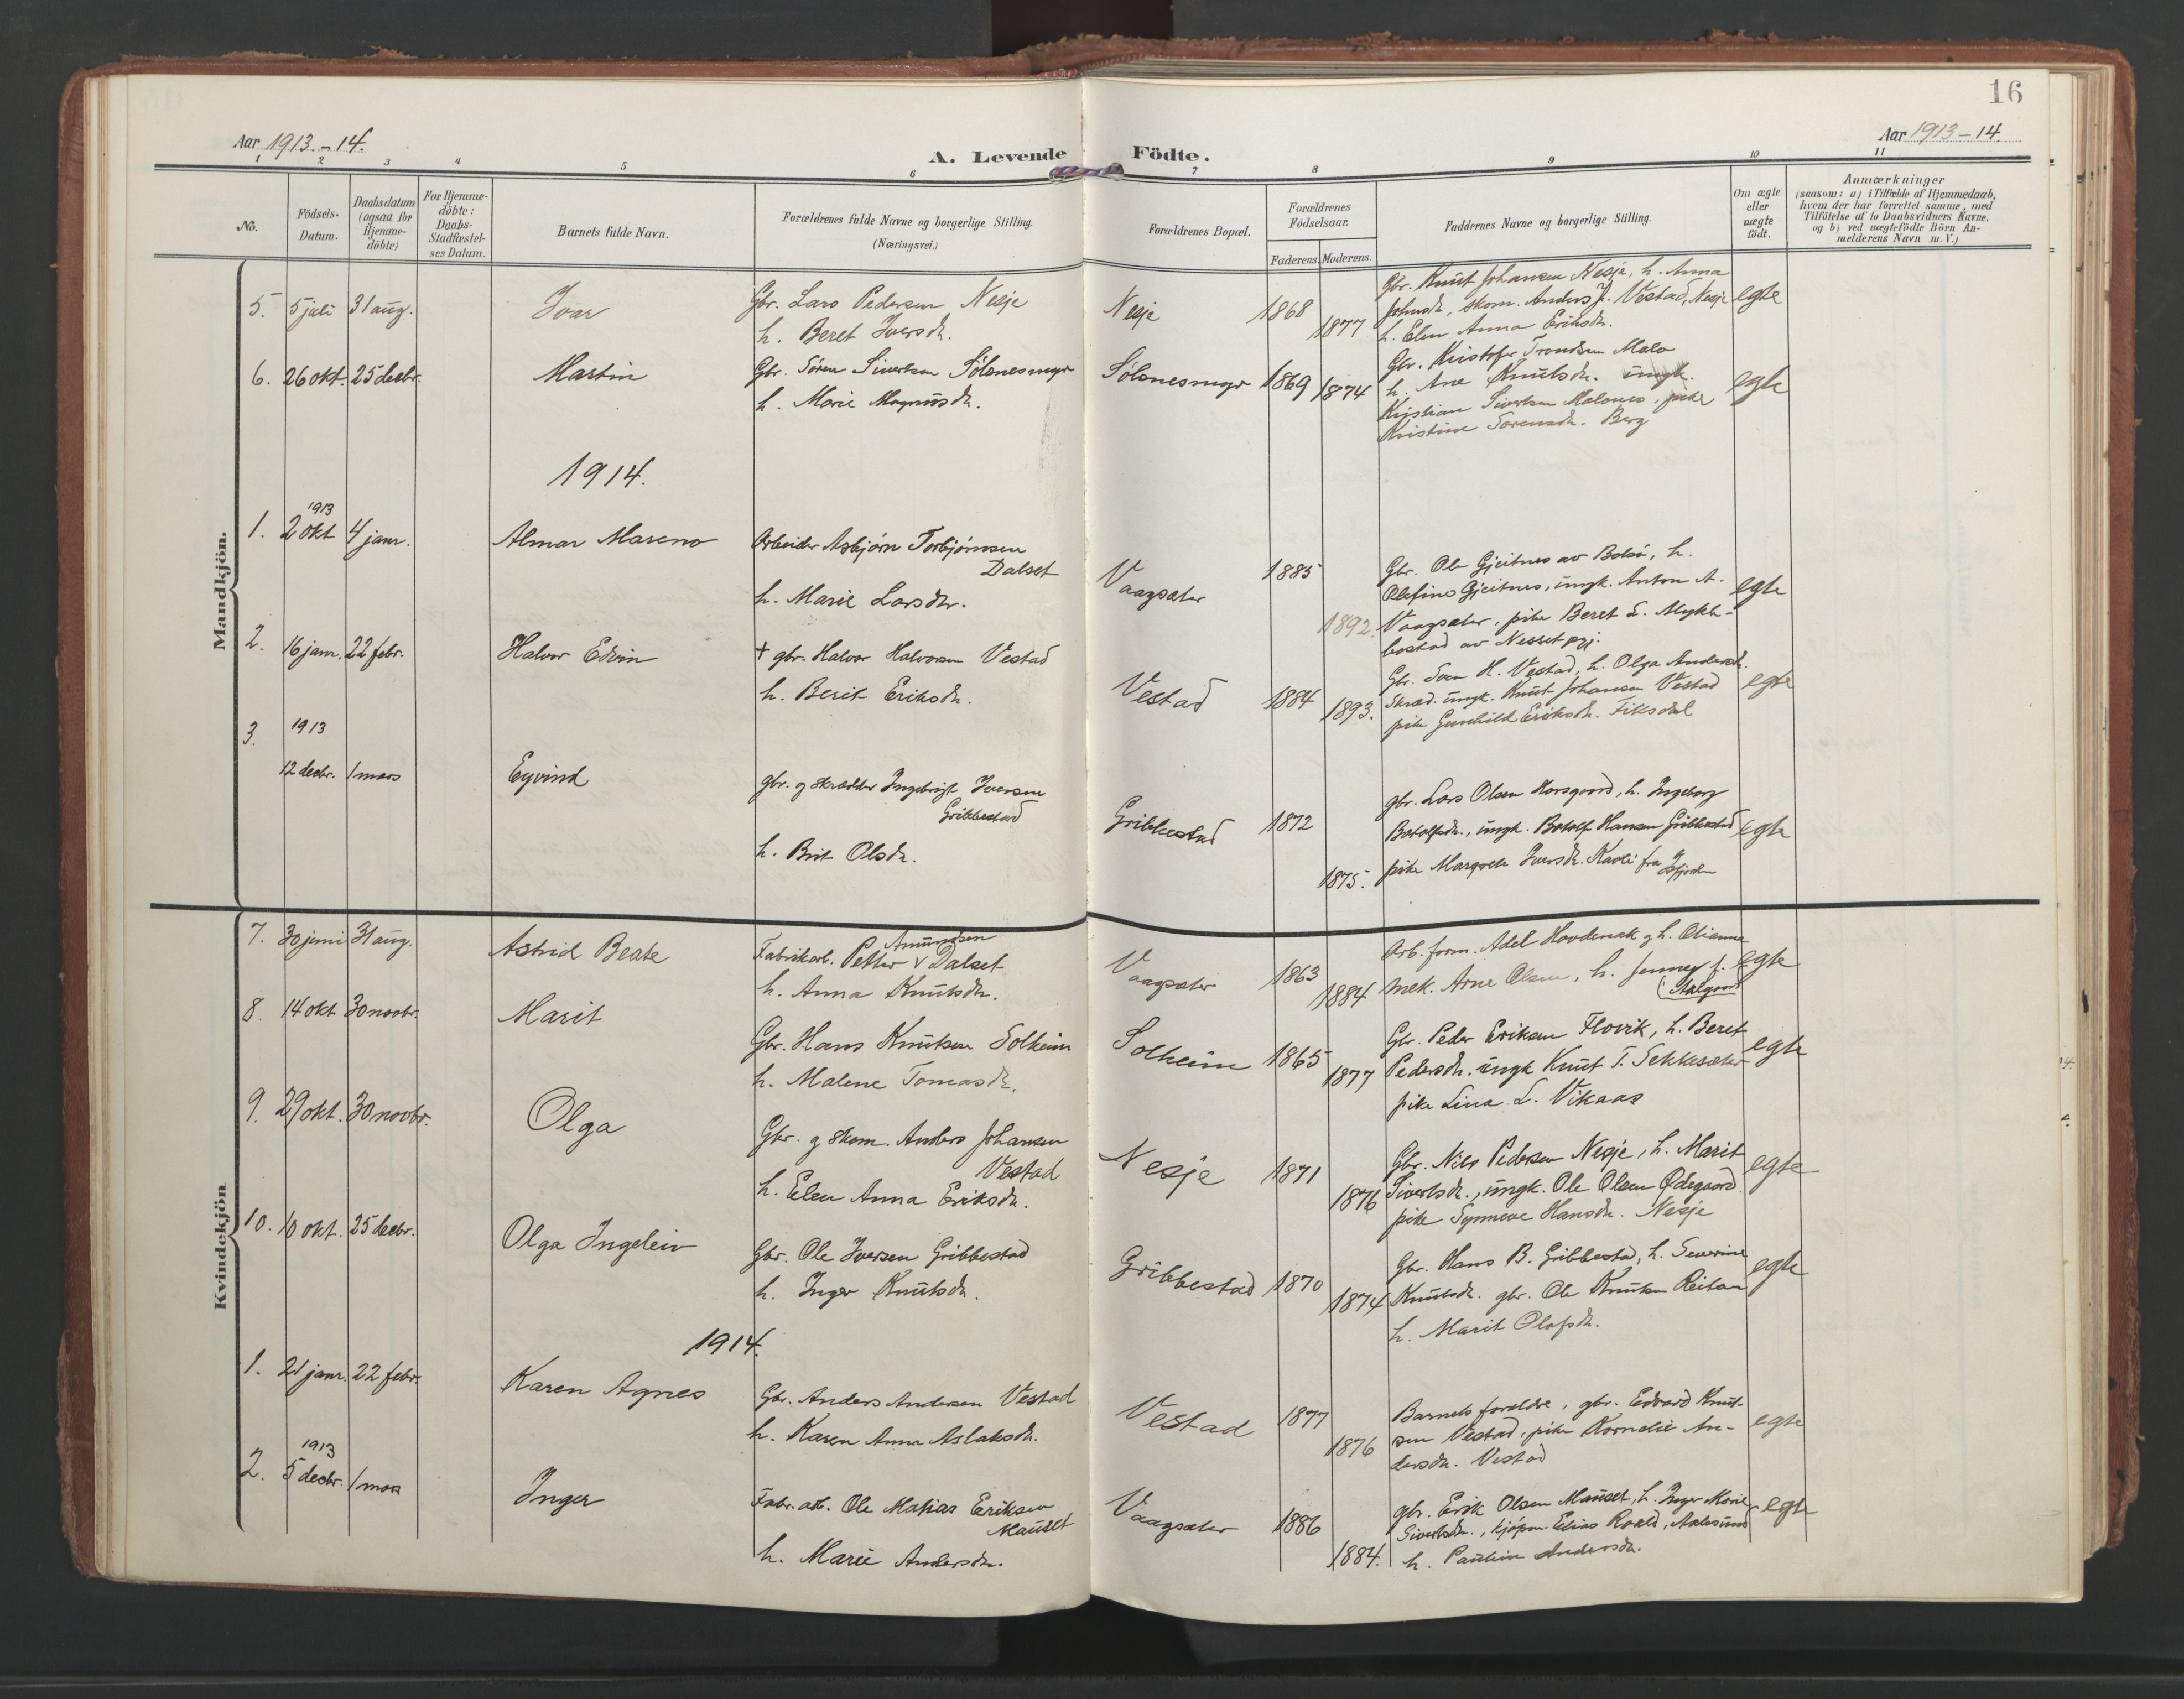 16
Aar 1913.-14.
A. Levende Födte.
Aar 1913-14
1 2 3 4 5 6 7 8 9 10 11
No.
Födsels-Datum.
Daabsdatum (ogsaa for Hjemme-döbte)
For Hjemme-döbte: Daabs-Stadfæstel-ses Datum.
Barnets fulde Navn.
Forældrenes fulde Navne og borgerlige Stilling. (Næringsvei.)
Forældrenes Bopæl.
Forældrenes Födselsaar.
Faderens. Moderens.
Faddernes Navne og borgerlige Stilling.
Om ægte eller uægte födt.
Anmærkninger
(saasom: a) i Tilfælde af Hjemmedaab,
hvem der har forrettet samme, med
Tilföielse af to Daabsvidners Navne.
og b) ved uægtefödte Börn An-
melderens Navn m. V.)
Mandkjön.
5. 5 juli 31 aug. Ivar
Gbr. Lars Pedersen Nesje
h. Beret Iversdr.
Nesje 1868 1877
Gbr. Knut Johansen Nesje, h. Anna
Johnsdr, skom. Anders J. Vestad, Nesje
h. Elen Anna Eriksdr.
egte
6. 26 okt. 25 decbr. Martin
Gbr. Søren Sivertsen Sölsnesmyr
h. Marie Magnusdr.
Sölsnesmyr 1869 1874
Gbr. Kristofer Trondsen Malo
h. Ane Knutsdr. ungk.
Kristian Sivertsen Malones, pike
Kristine Sørensdr. Berg
egte
1914.
1. 1913
2 okt 4 janr. Almar Mareno
Arbeider Asbjørn Torbjørnsen
Dalset
h. Marie Larsdtr.
Vaagsæter 1885 1892.
Gbr. Ole Gjeitnes av Bolsø, h.
Olefine Gjeitnes, ungk. Anton A.
Vaagsæter, pike Beret L. Mykle-
bostad av Nesset pgj.
egte
2. 16 janr. 22 febr. Halvor Edvin
+ gbr. Halvor Halvorsen Vestad
h. Berit Eriksdr.
Vestad 1884 1893.
Gbr. Sven H. Vestad, h. Olga Andersdr.
Skræd. ungk. Knut Johansen Vestad
pike Gunhild Eriksdr. Fiksdal
egte
3. 1913
12 decbr. 1 mars Eyvind
gbr. og skrædder Ingebrigt Iversen
Gribbestad
h. Brit Olsdr.
Gribbestad 1872 1875.
gbr. Lars Olsen Horsgaard, h. Ingeborg
Botolfsdr., ungk. Botolf Hansen Gribbestad
pike Margrete Iversdr. Kavli fra
Isfjorden
egte
Kvindekjön
7. 30 juni 31 aug. Astrid Beate
Amundsen
Fabrikarb. Petter v Dalset
h. Anna Knutsdr.
Vaagsæter 1863 1884
Arb. form. Adel Hovdenak og h. Olianna
mek. Arne Olsen, h. Jenney f.
egte
8. 14 okt 30 novbr. Marit
Gbr. Hans Knutsen Solheim
h. Malene Tomasdr.
Solheim 1865 1877
Gbr. Peder Eriksen Flovik, h. Beret
Pedersdr. ungk Knut T. Sekkesæter
pike Lina L. Vikaas
egte
9. 29 okt. 30 novbr. Olga
Gbr. og skom. Anders Johansen
Vestad
h. Elen Anna Eriksdr.
Nesje 1871 1876
Gbr. Nils Pedersen Nesje, h. Marit
Sivertsdr., ungk. Ole Olsen Ødegaard
pike Synneve Hansdr. Nesje
egte
10. 10 okt. 25 decbr. Olga Ingeleiv
Gbr. Ole Iversen Gribbestad
h. Inger Knutsdr.
Gribbestad 1870 1874
Gbr. Hans B. Gribbestad, h. Severine
Knutsdr. gbr. Ole Knutsen Reitan
h. Marit Olafsdr.
egte
1914.
1. 21 janr. 22 febr. Karen Agnes
Gbr. Anders Andersen Vestad
h. Karen Anna Aslaksdr.
Vestad 1877 1876
Barnets forældre, gbr. Edvard Knut-
sen Vestad, pike Kornelie An-
dersdr. Vestad
egte
2. 1913
5 decbr. 1 mars Inger
Fabr. arb. Ole Matias Eriksen
Mauset
h. Marie Andersdr.
Vaagsæter 1886 1884.
gbr. Erik Olsen Mauset, h. Inger Marie
Sivertsdr., kjøpm. Elias Roald, Aalesund
h. Pauline Andersdr.
egte